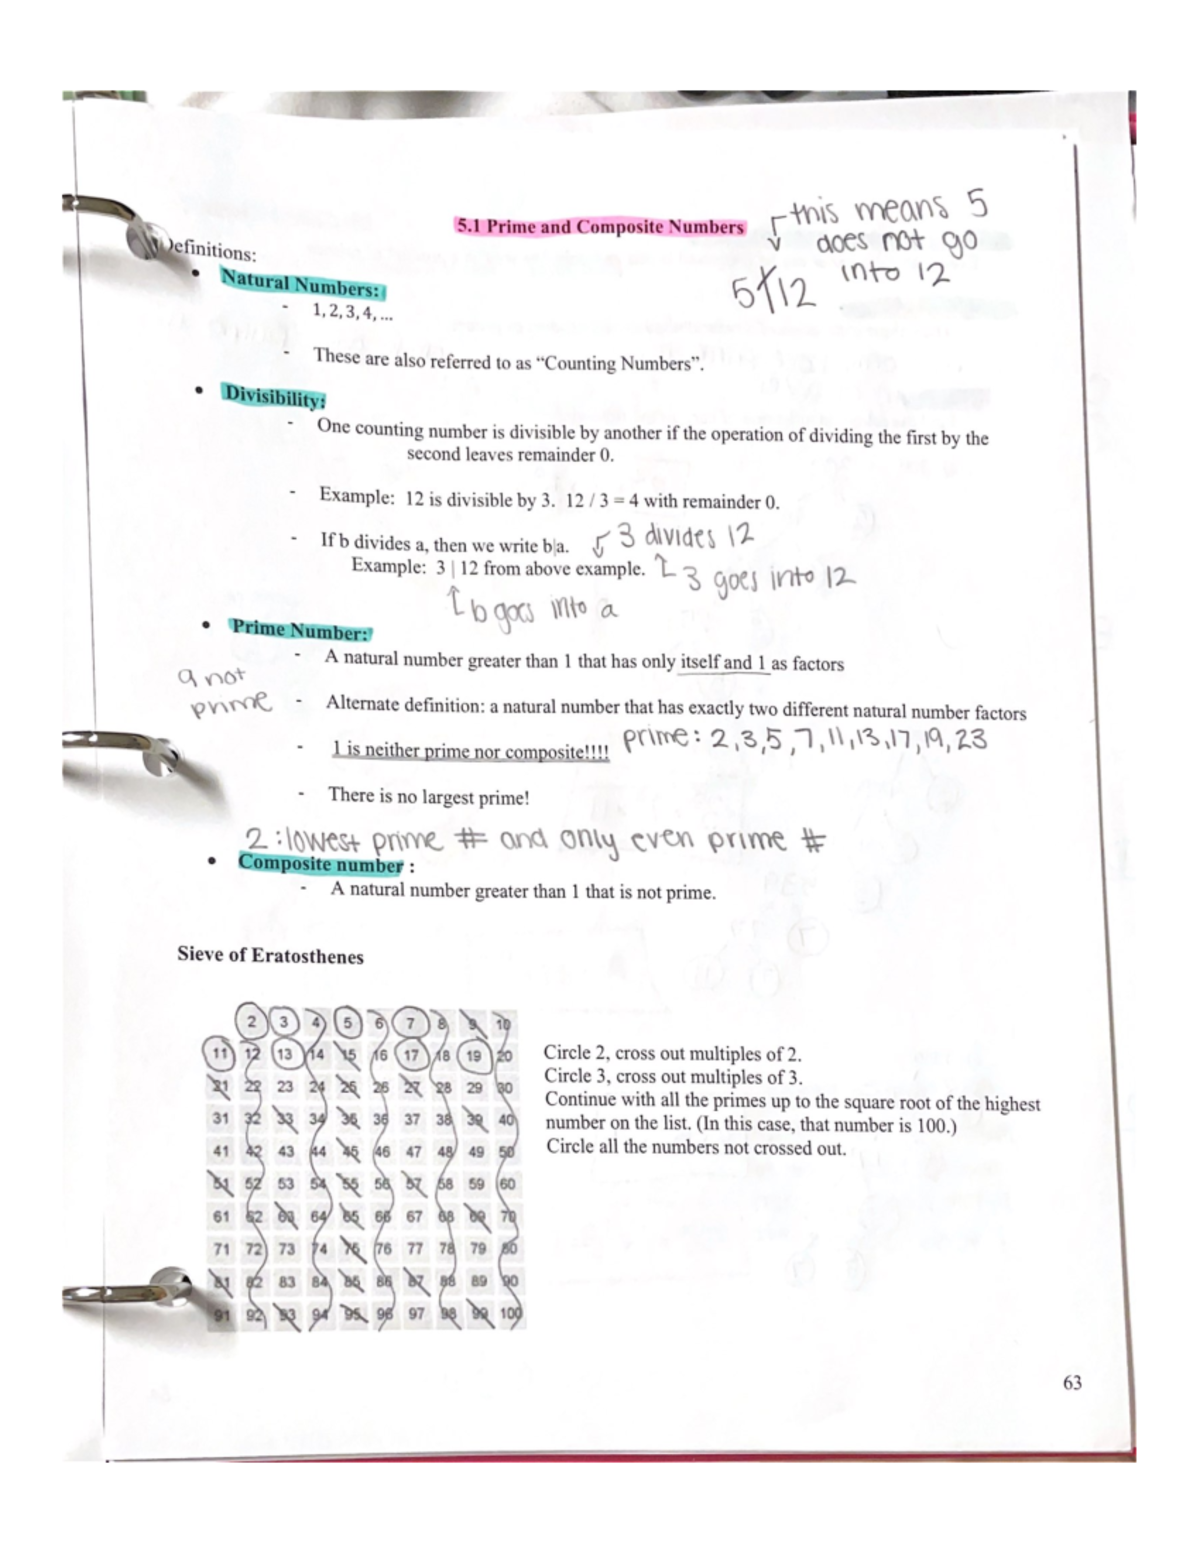 5.1 Prime and Composite Numbers
this means 5
does not go
into 12
5∤12
Definitions:
• Natural Numbers:
- 1, 2, 3, 4, ...
- These are also referred to as “Counting Numbers”.
• Divisibility:
- One counting number is divisible by another if the operation of dividing the first by the
second leaves remainder 0.
- Example: 12 is divisible by 3. 12 / 3 = 4 with remainder 0.
- If b divides a, then we write b|a.
3 divides 12
Example: 3 | 12 from above example.
3 goes into 12
b goes into a
• Prime Number:
- A natural number greater than 1 that has only itself and 1 as factors
9 not
prime
- Alternate definition: a natural number that has exactly two different natural number factors
- 1 is neither prime nor composite!!!!
prime: 2, 3, 5, 7, 11, 13, 17, 19, 23
- There is no largest prime!
2 : lowest prime # and only even prime #
• Composite number :
- A natural number greater than 1 that is not prime.
Sieve of Eratosthenes
2 3 4 5 6 7 8 9 10
11 12 13 14 15 16 17 18 19 20
21 22 23 24 25 26 27 28 29 30
31 32 33 34 35 36 37 38 39 40
41 42 43 44 45 46 47 48 49 50
51 52 53 54 55 56 57 58 59 60
61 62 63 64 65 66 67 68 69 70
71 72 73 74 75 76 77 78 79 80
81 82 83 84 85 86 87 88 89 90
91 92 93 94 95 96 97 98 99 100
Circle 2, cross out multiples of 2.
Circle 3, cross out multiples of 3.
Continue with all the primes up to the square root of the highest
number on the list. (In this case, that number is 100.)
Circle all the numbers not crossed out.
63